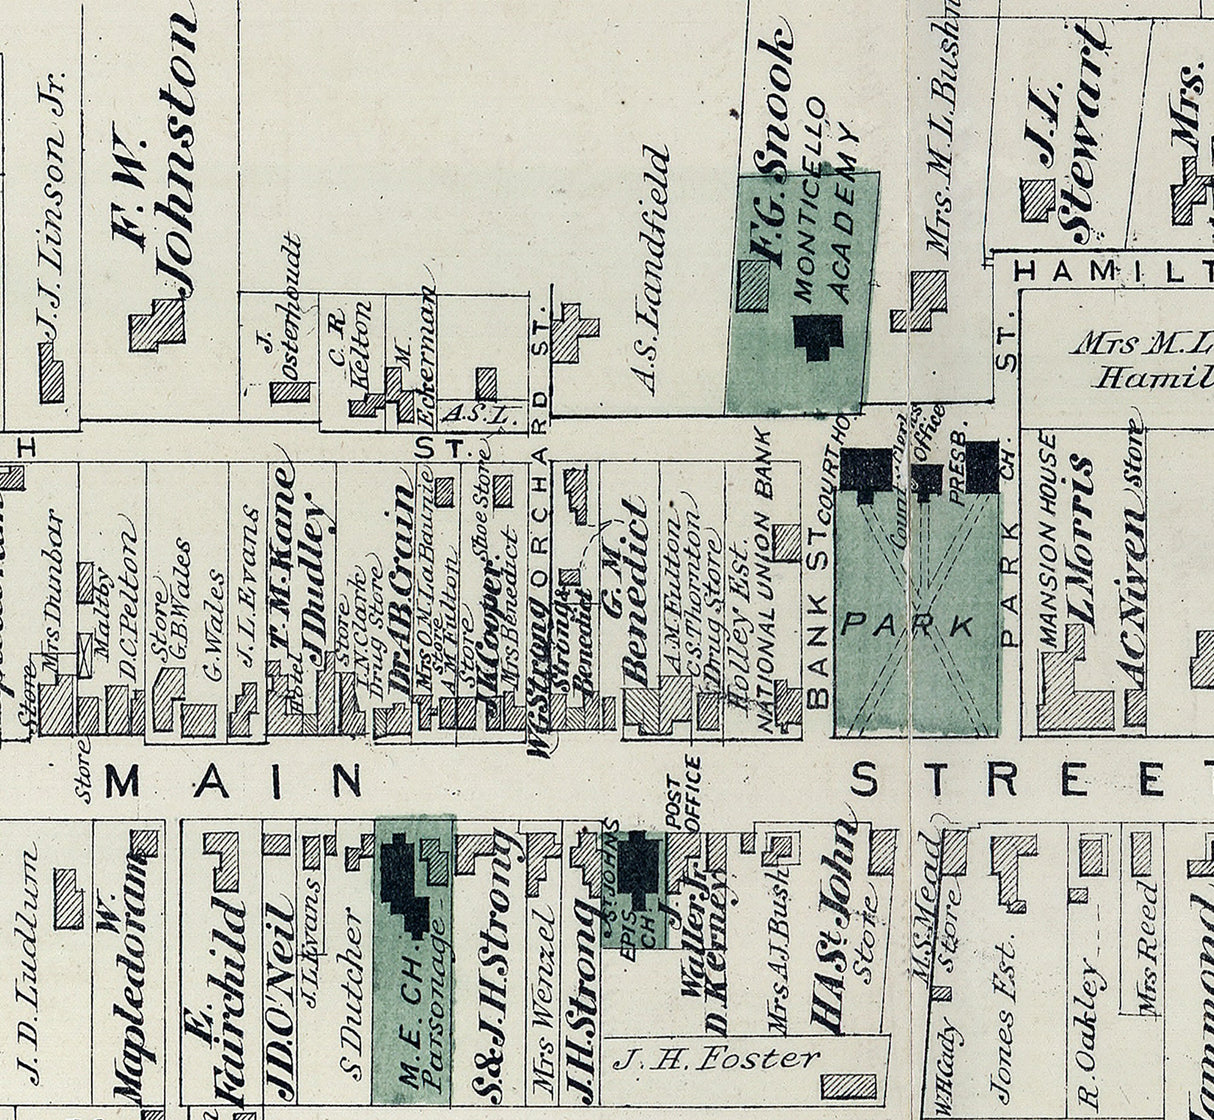 J. J. Linson Jr.
F. W.
Johnston
J.
Osterhoudt
C. R
Kelton
M.
Eckerman
A.S.L.
A.S. Landfield
F.G. Snook
MONTICELLO
ACADEMY
Mrs. M. L. Bushn
J.L.
Stewart
Mrs.
HAMILT
Mrs M.L
Hamil
ST.
H
ST.
ORCHARD ST.
Mrs Dunbar
Maltby
D.C. Pelton
Store
G.B. Wales
G. Wales
J. L. Evans
T. M. Kane
Hotel
J Dudley
Store
Drug Store
Dr. A B Crain
Mrs O. M. LaBaunie
Store
A M Fulton
J K Cooper
Shoe Store
Mrs. Benedict
W G Strong
Strong &
Benedict
G. M.
Benedict
A. M. Fulton
C. S. Thornton
Drug Store
Holley Est.
NATIONAL UNION BANK
BANK ST
COURT HO.
County Clerk's
Office
PRESB.
CH.
PARK
PARK
MANSION HOUSE
L Morris
A C Niven
Store
Store
Store
MAIN
STREET
J. D. Ludlum
W.
Mapledoram
E.
Fairchild
J D. O'Neil
J. L. Evans
S Dutcher
M. E. CH.
Parsonage
S. & J. H. Strong
Mrs Wenzel
J. H. Strong
ST JOHNS
EPIS
CH
POST
OFFICE
J.
Waller Jr.
D Kerney
Mrs A J. Bush
H A St John
Store
J. H. Foster
M. S. Mead
Store
W H Cady
Jones Est.
R. Oakley
Mrs Reed
ammond